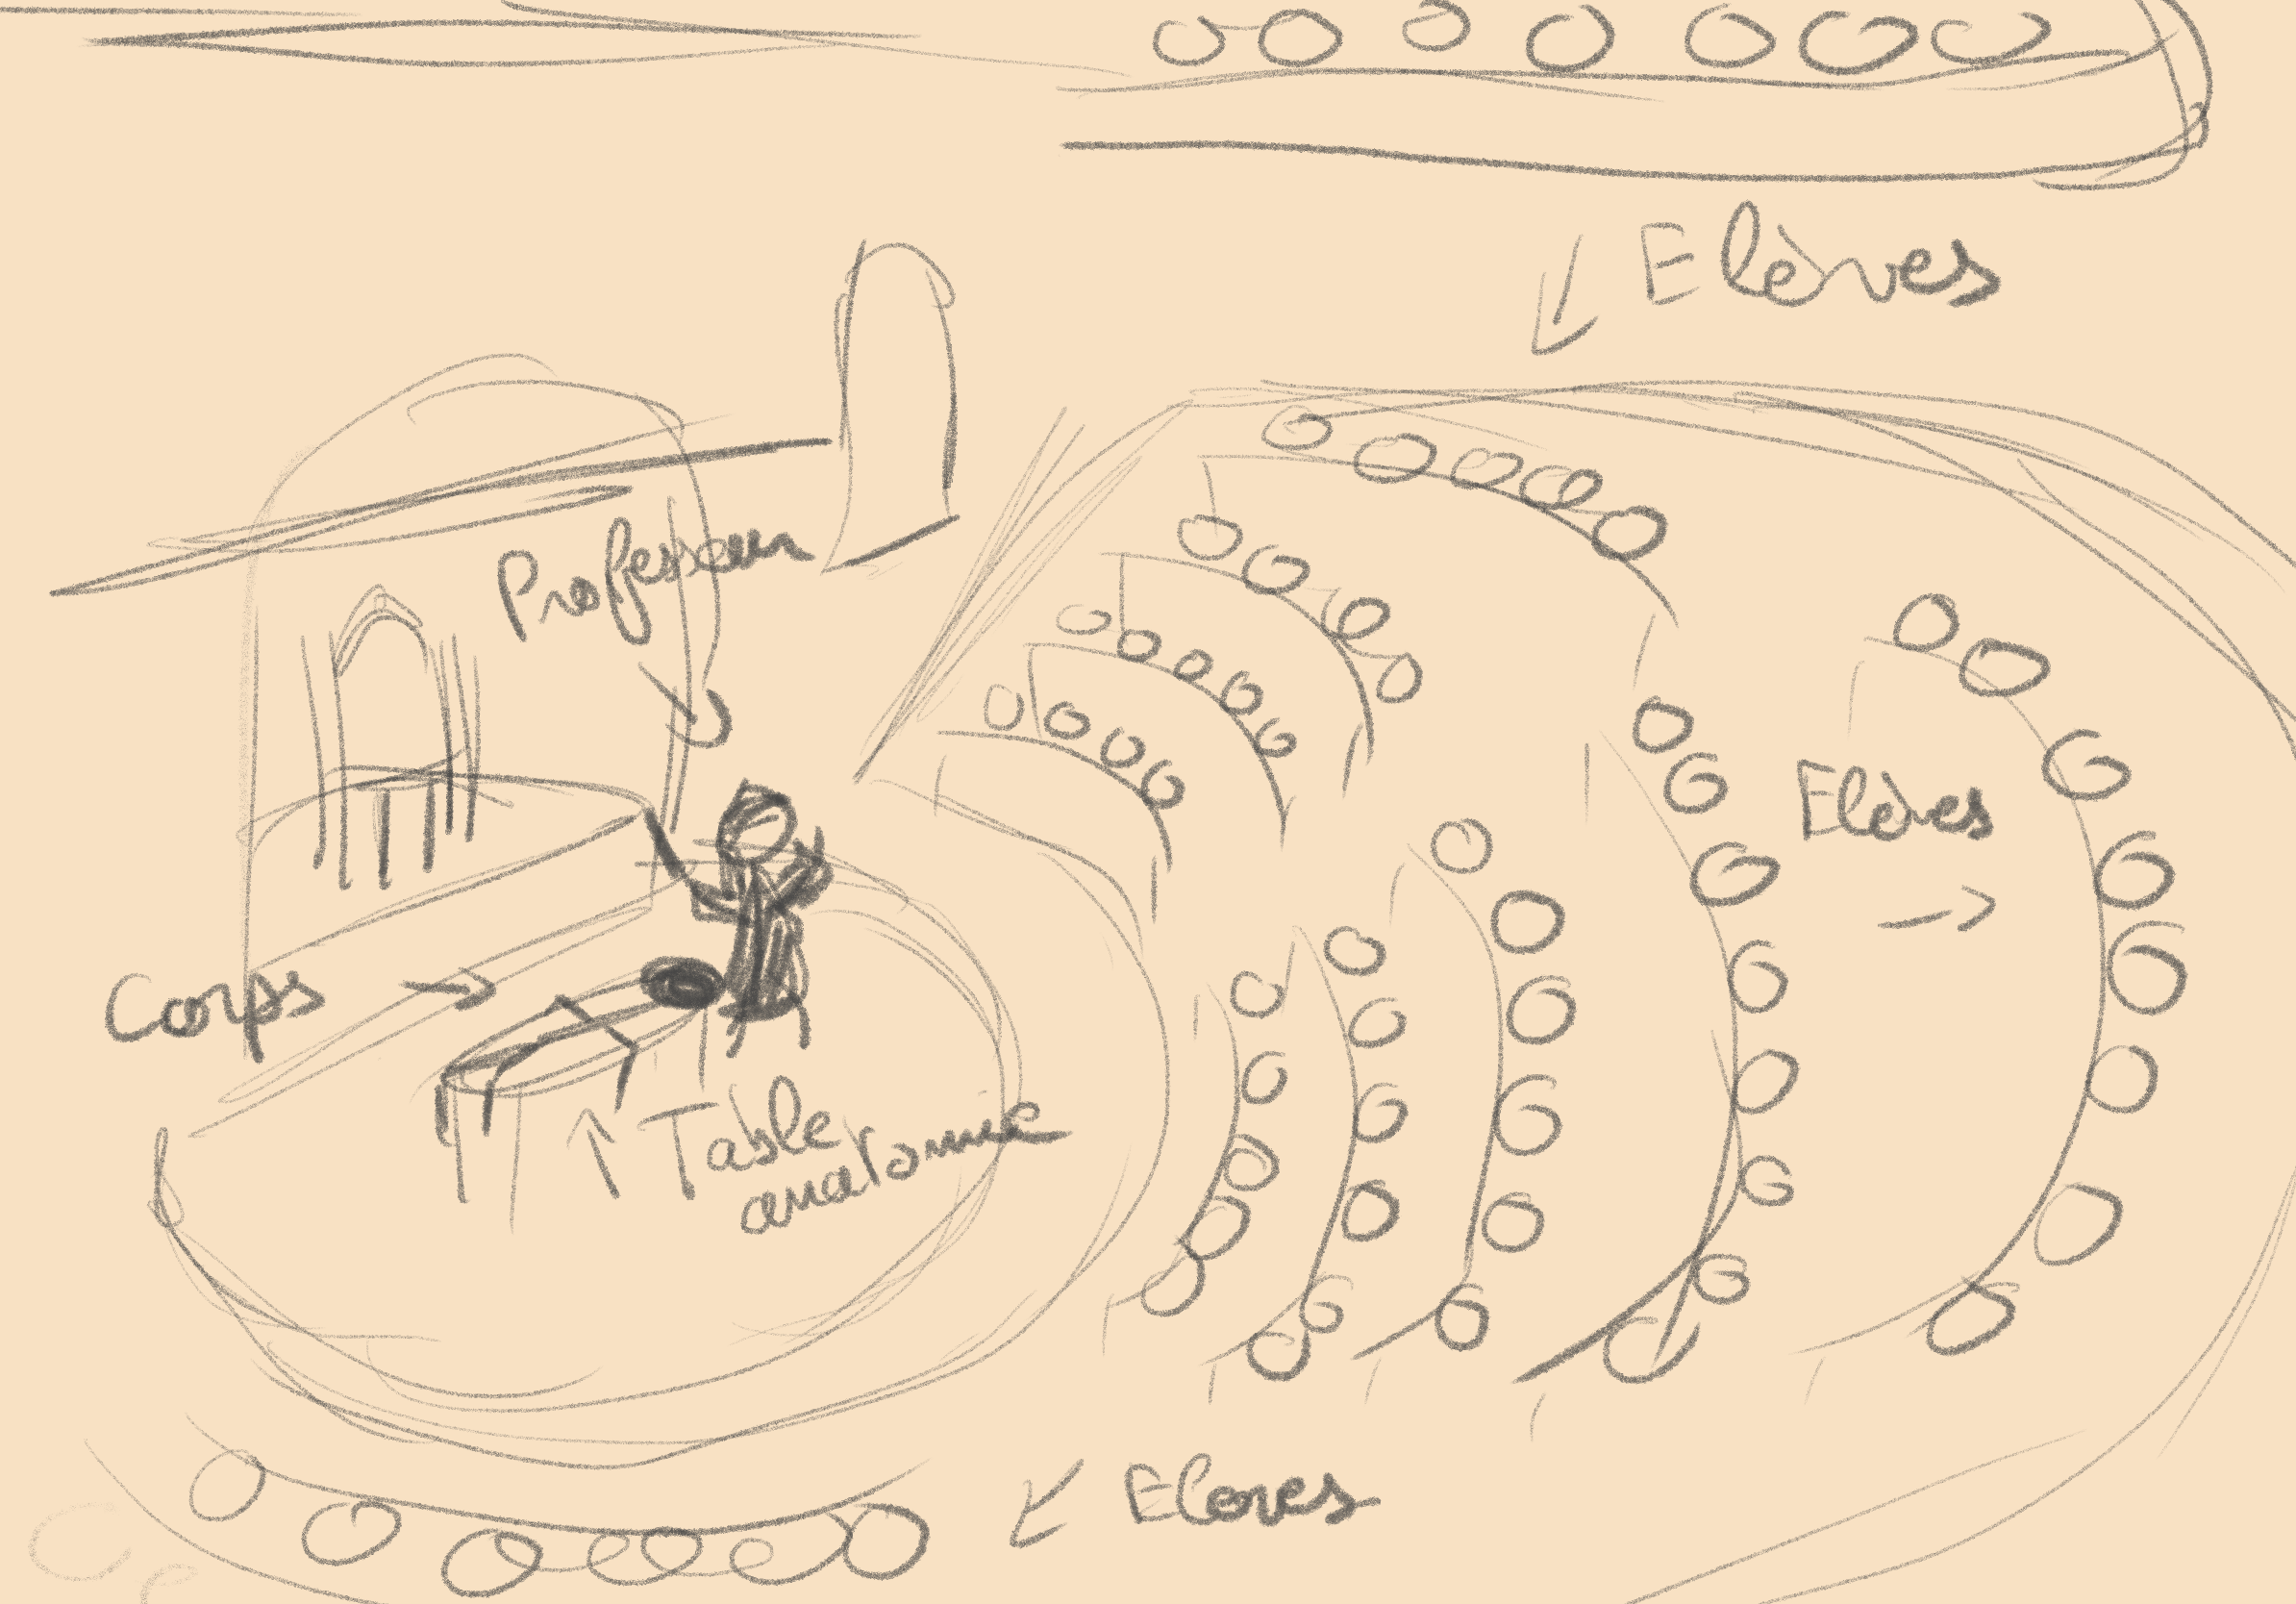 Elèves
Professeur
Elèves
Corps
Table
anatomie
Eleves